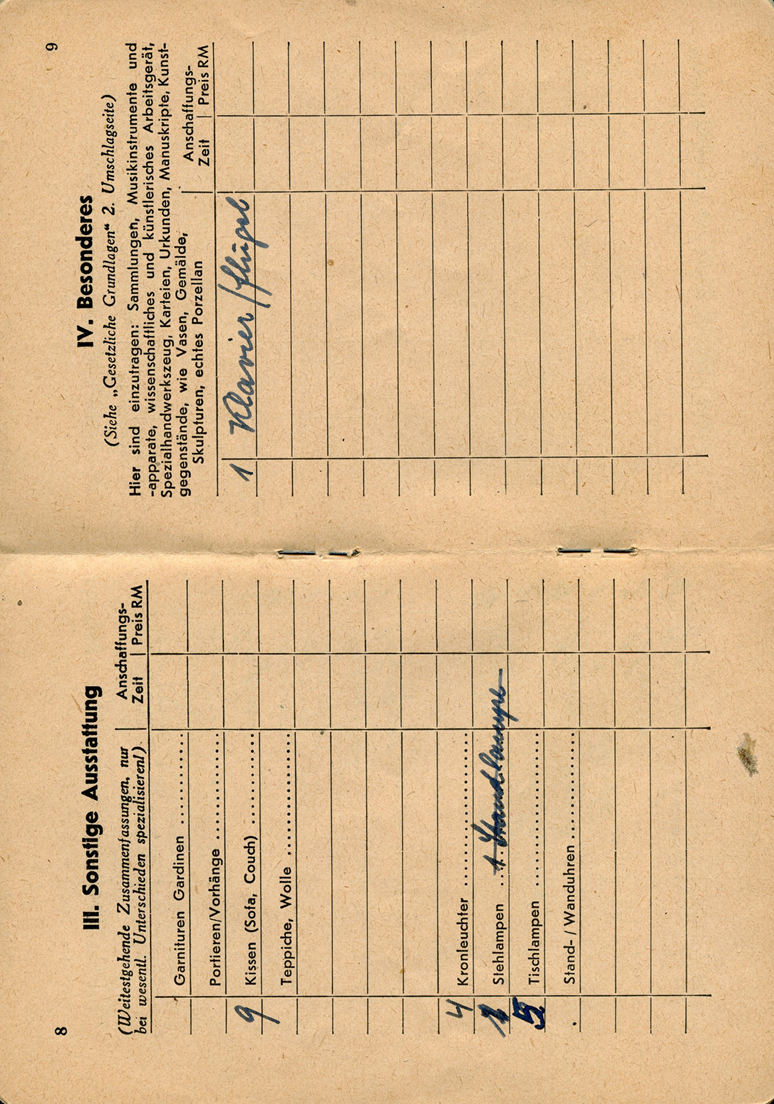 8
III. Sonstige Ausstattung
(Weitestgehende Zusammenfassungen, nur
bei wesentl. Unterschieden spezialisieren!)
Anschaffungs-
Zeit | Preis RM
Garnituren Gardinen
Portieren/Vorhänge
9 Kissen (Sofa, Couch)
Teppiche, Wolle
4 Kronleuchter
Stehlampen 1 Standlampe
Tischlampen
Stand- / Wanduhren
9
IV. Besonderes
(Siehe „Gesetzliche Grundlagen“ 2. Umschlagseite)
Hier sind einzutragen: Sammlungen, Musikinstrumente und
-apparate, wissenschaftliches und künstlerisches Arbeitsgerät,
Spezialhandwerkszeug, Karteien, Urkunden, Manuskripte, Kunst-
gegenstände, wie Vasen, Gemälde,
Skulpturen, echtes Porzellan
Anschaffungs-
Zeit | Preis RM
1 Klavier/Flügel